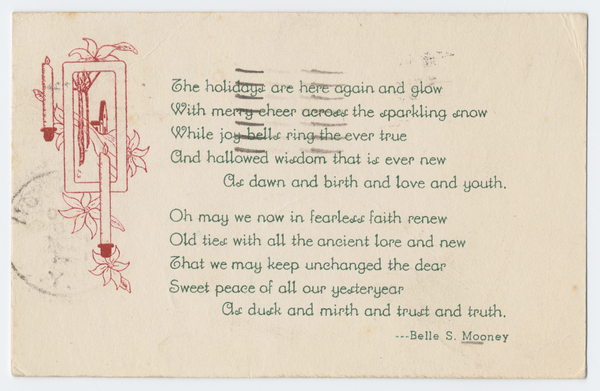 The holidays are here again and glow
With merry cheer across the sparkling snow
While joy bells ring the ever true
And hallowed wisdom that is ever new
As dawn and birth and love and youth.
Oh may we now in fearless faith renew
Old ties with all the ancient lore and new
That we may keep unchanged the dear
Sweet peace of all our yesteryear
As dusk and mirth and trust and truth.
---Belle S. Mooney